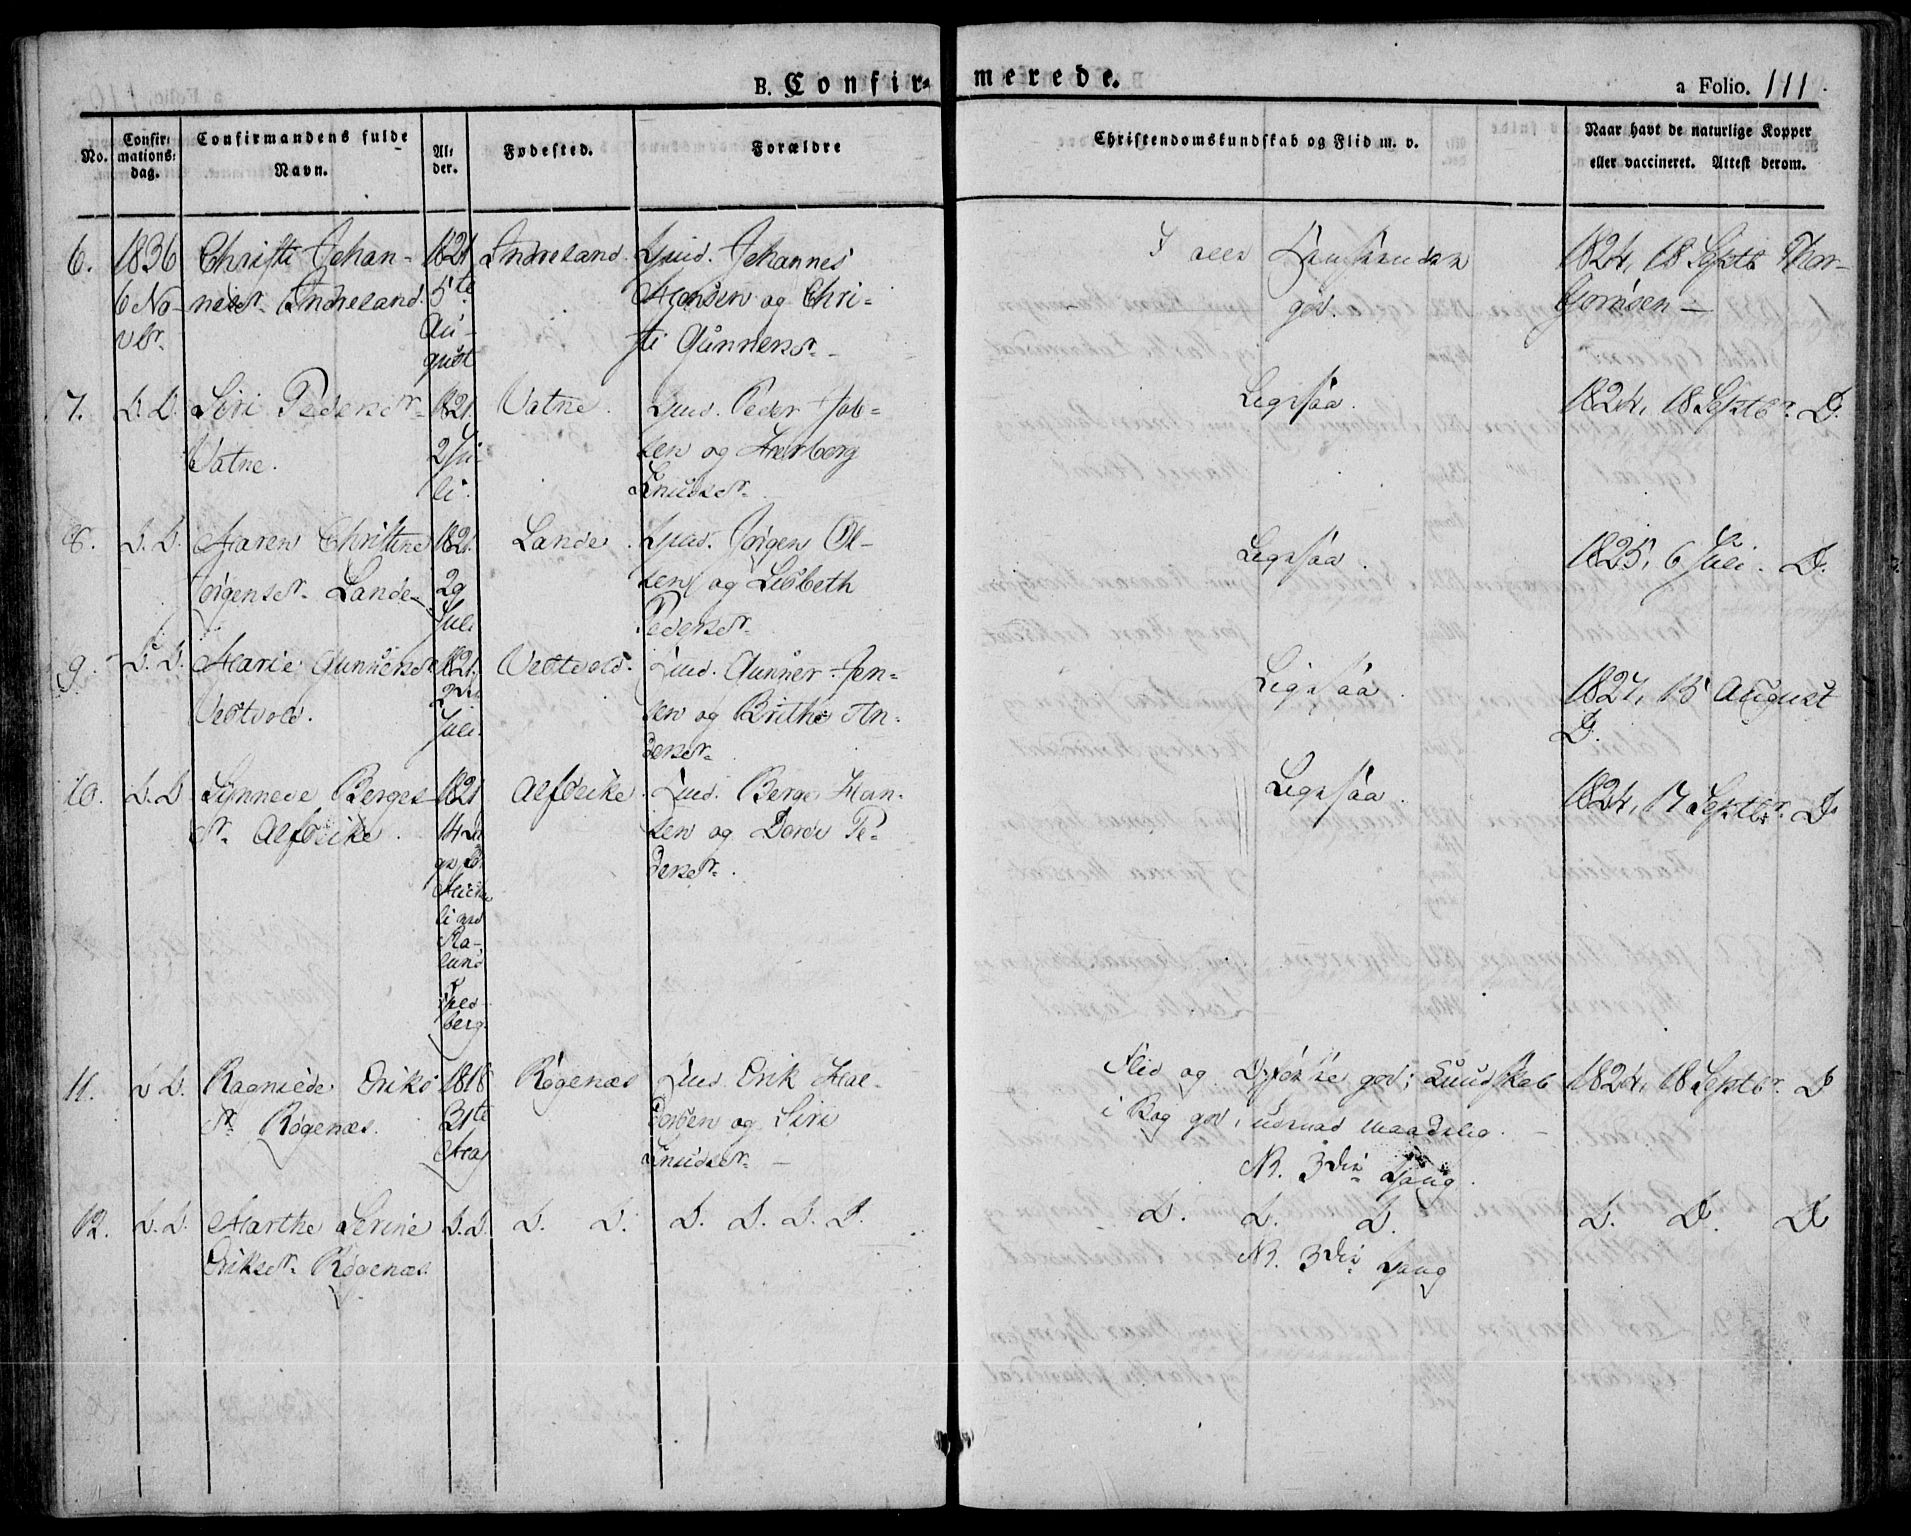 B. Confir-
merede.
a Folio. 111.
No.
Confir-
mations-
dag.
Confirmandens fulde
Navn.
Al-
der.
Fødested.
Forældre
Christendomskundskab og Flid m. v.
Naar havt de naturlige Kopper
eller vaccineret. Attest derom.
6.
1836
6 No-
vbr.
Christi Johan-
nesdr. Indreland
1821
5te
Au-
gust
Indreland.
Gmd. Johannes
Hansen og Chri-
sti Gunnersdr.
godt
1824, 18 Septb Thor-
7.
D. D.
Siri Pedersdr.
Vatne.
1821.
2 Ju-
li.
Vatne.
Gmd. Peder Jab-
sen og Herborg
Knudsdr.
Ligesaa.
1824, 18 Septbr. D.
8.
D. D.
Maren Christine
Jørgensdr. Lande
1821.
29
Juli
Lande.
Gmd. Jørgen Ol-
sen og Lisbeth
Pedersdr.
Ligesaa.
1825, 6 Juli. D.
9.
D. D.
Marie Gunnersdr
Vestvold.
1821.
Juli.
Vestvold.
Gmd. Gunner Jen-
sen og Brithe An-
dersdr.
Ligesaa.
1827, 15 August
D.
10.
D. D
Sünneve Berges
dr.
1821
14
berg.
Gmd. Berge Han-
sen og Dorde Pe-
dersdr.
Ligesaa.
1824, 17 Septbr. D
11.
D D.
Ragnilde Eriks
dr. Røgenæs.
1818
31te
Mai
Røgenæs
Gmd. Erik Hal-
dorsen og Siri
Knudsdr.
Flid og Opførsel god; Kundskab
i Bog god, udenad maadelig.
NB. 3die Gang.
1824, 18 Septbr. D
12.
D. D.
Marthe Serine
Eriksdr. Røgenæs.
D. D.
D. D.
D. D. D. D.
D. D. D.
NB. 3die Gang
D. D. D